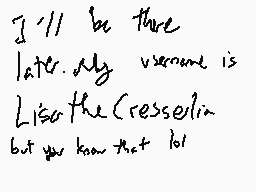 I'll be there
later. My username is
LisatheCresselia
but you know that lol